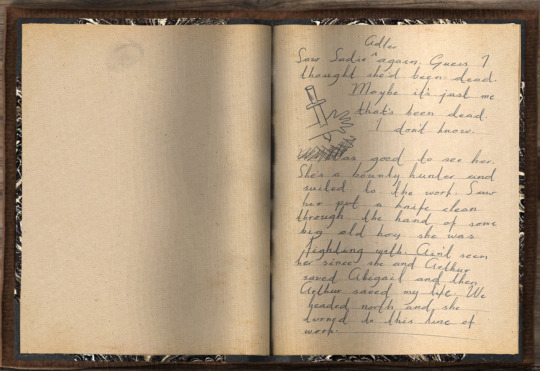 Adler
Saw Sadie ^ again. Guess I
thought she'd been dead.
Maybe it's just me
that's been dead.
I don't know.
was good to see her.
She's a bounty hunter and
suited to the work. Saw
her put a knife clean
through the hand of some
big old boy she was
fighting with. Ain't seen
her since she and Arthur
saved Abigail and then
Arthur saved my life. We
headed north and she
turned to this line of
work.